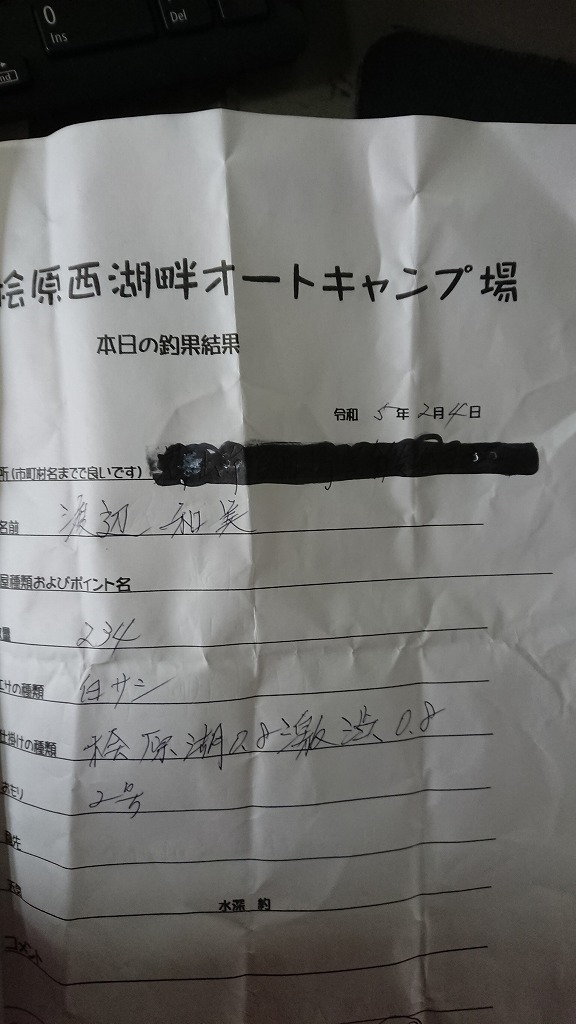 0
Ins
Del
桧原西湖畔オートキャンプ場
本日の釣果結果
令和 5年 2月 4日
所(市町村名までで良いです)
名前 渡辺 和美
屋種類およびポイント名
数量 234
エサの種類 白サシ
仕掛けの種類 桧原湖0.8 激渋0.8
おもり 2号
穂先
水深 約
コメント